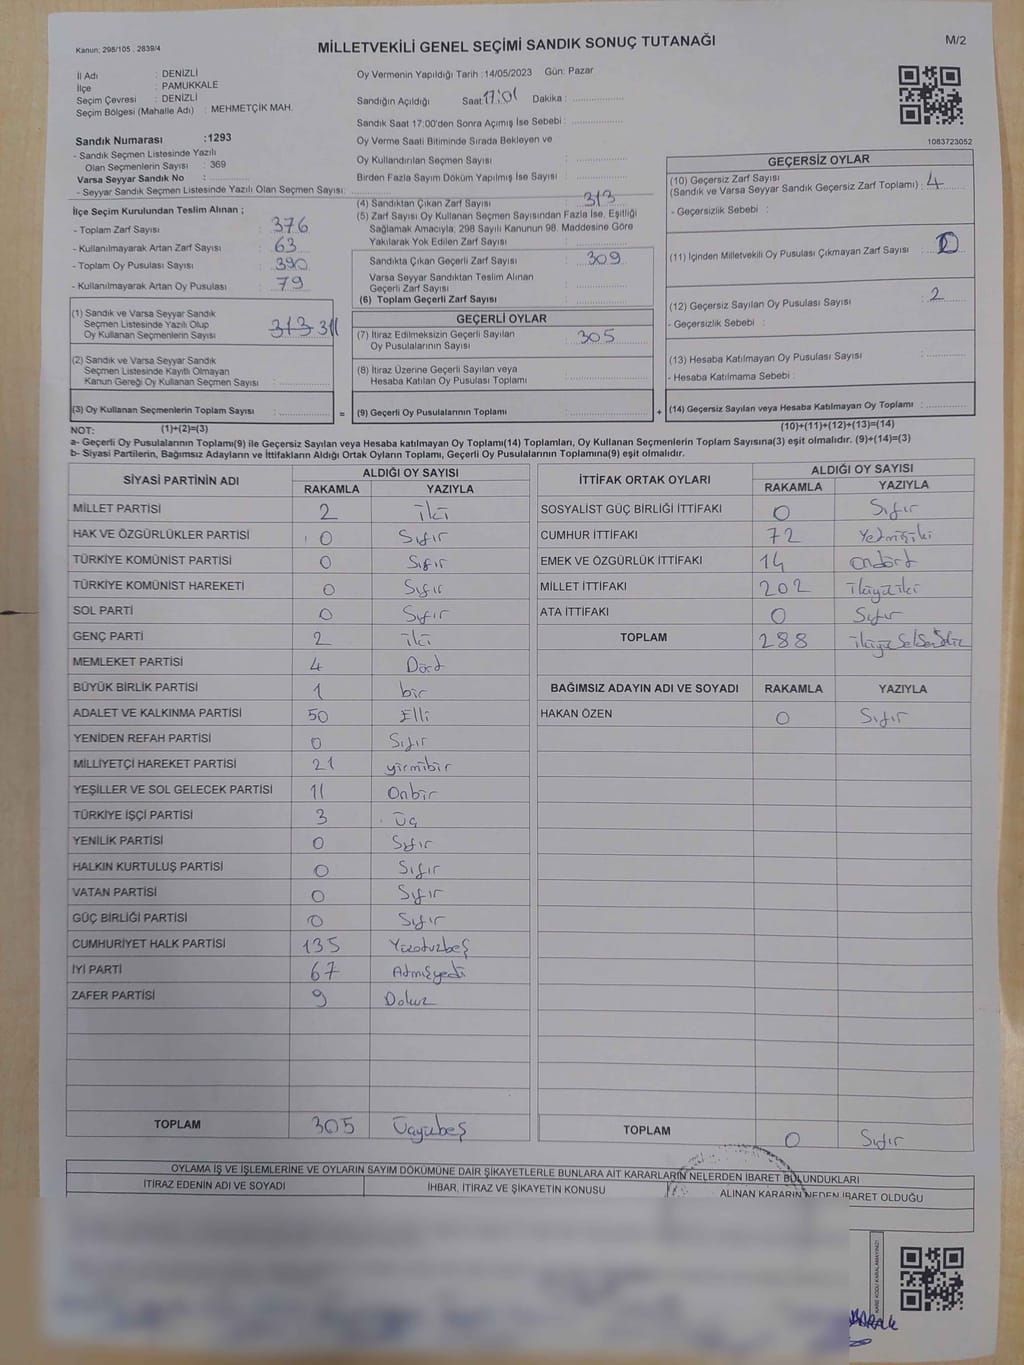 Kanun; 298/105 , 2839/4
MİLLETVEKİLİ GENEL SEÇİMİ SANDIK SONUÇ TUTANAĞI
M/2
İl Adı : DENİZLİ
İlçe : PAMUKKALE
Seçim Çevresi : DENİZLİ
Seçim Bölgesi (Mahalle Adı) : MEHMETÇİK MAH.
Sandık Numarası :1293
- Sandık Seçmen Listesinde Yazılı
Olan Seçmenlerin Sayısı : 369
Varsa Seyyar Sandık No :
- Seyyar Sandık Seçmen Listesinde Yazılı Olan Seçmen Sayısı:
Oy Vermenin Yapıldığı Tarih :14/05/2023 Gün: Pazar
Sandığın Açıldığı Saat 17:01 Dakika :
Sandık Saat 17:00'den Sonra Açımış İse Sebebi :
Oy Verme Saati Bitiminde Sırada Bekleyen ve
Oy Kullandırılan Seçmen Sayısı :
Birden Fazla Sayım Döküm Yapılmış İse Sayısı :
1083723052
İlçe Seçim Kurulundan Teslim Alınan ;
- Toplam Zarf Sayısı : 376
- Kullanılmayarak Artan Zarf Sayısı : 63
- Toplam Oy Pusulası Sayısı : 390
- Kullanılmayarak Artan Oy Pusulası : 79
(1) Sandık ve Varsa Seyyar Sandık
Seçmen Listesinde Yazılı Olup
Oy Kullanan Seçmenlerin Sayısı 313 311
(2) Sandık ve Varsa Seyyar Sandık
Seçmen Listesinde Kayıtlı Olmayan
Kanun Gereği Oy Kullanan Seçmen Sayısı :
(3) Oy Kullanan Seçmenlerin Toplam Sayısı :
(4) Sandıktan Çıkan Zarf Sayısı : 313
(5) Zarf Sayısı Oy Kullanan Seçmen Sayısından Fazla İse, Eşitliği
Sağlamak Amacıyla, 298 Sayılı Kanunun 98. Maddesine Göre
Yakılarak Yok Edilen Zarf Sayısı :
Sandıkta Çıkan Geçerli Zarf Sayısı : 309
Varsa Seyyar Sandıktan Teslim Alınan
Geçerli Zarf Sayısı :
(6) Toplam Geçerli Zarf Sayısı :
GEÇERLİ OYLAR
(7) İtiraz Edilmeksizin Geçerli Sayılan
Oy Pusulalarının Sayısı : 305
(8) İtiraz Üzerine Geçerli Sayılan veya
Hesaba Katılan Oy Pusulası Toplamı :
= (9) Geçerli Oy Pusulalarının Toplamı :
GEÇERSİZ OYLAR
(10) Geçersiz Zarf Sayısı
(Sandık ve Varsa Seyyar Sandık Geçersiz Zarf Toplamı) : 4
- Geçersizlik Sebebi :
(11) İçinden Milletvekili Oy Pusulası Çıkmayan Zarf Sayısı : 0
(12) Geçersiz Sayılan Oy Pusulası Sayısı : 2
- Geçersizlik Sebebi :
(13) Hesaba Katılmayan Oy Pusulası Sayısı :
- Hesaba Katılmama Sebebi :
+ (14) Geçersiz Sayılan veya Hesaba Katılmayan Oy Toplamı :
NOT: (1)+(2)=(3) (10)+(11)+(12)+(13)=(14)
a- Geçerli Oy Pusulalarının Toplamı(9) ile Geçersiz Sayılan veya Hesaba katılmayan Oy Toplamı(14) Toplamları, Oy Kullanan Seçmenlerin Toplam Sayısına(3) eşit olmalıdır. (9)+(14)=(3)
b- Siyasi Partilerin, Bağımsız Adayların ve İttifakların Aldığı Ortak Oyların Toplamı, Geçerli Oy Pusulalarının Toplamına(9) eşit olmalıdır.
SİYASİ PARTİNİN ADI ALDIĞI OY SAYISI
RAKAMLA YAZIYLA
MİLLET PARTİSİ 2 iki
HAK VE ÖZGÜRLÜKLER PARTİSİ 0 Sıfır
TÜRKİYE KOMÜNİST PARTİSİ 0 Sıfır
TÜRKİYE KOMÜNİST HAREKETİ 0 Sıfır
SOL PARTİ 0 Sıfır
GENÇ PARTİ 2 iki
MEMLEKET PARTİSİ 4 Dört
BÜYÜK BİRLİK PARTİSİ 1 bir
ADALET VE KALKINMA PARTİSİ 50 Elli
YENİDEN REFAH PARTİSİ 0 Sıfır
MİLLİYETÇİ HAREKET PARTİSİ 21 yirmibir
YEŞİLLER VE SOL GELECEK PARTİSİ 11 Onbir
TÜRKİYE İŞÇİ PARTİSİ 3 üç
YENİLİK PARTİSİ 0 Sıfır
HALKIN KURTULUŞ PARTİSİ 0 Sıfır
VATAN PARTİSİ 0 Sıfır
GÜÇ BİRLİĞİ PARTİSİ 0 Sıfır
CUMHURİYET HALK PARTİSİ 135 Yüzotuzbeş
İYİ PARTİ 67 Atmışyedi
ZAFER PARTİSİ 9 Dokuz
TOPLAM 305 Üçyübeş
İTTİFAK ORTAK OYLARI ALDIĞI OY SAYISI
RAKAMLA YAZIYLA
SOSYALİST GÜÇ BİRLİĞİ İTTİFAKI 0 Sıfır
CUMHUR İTTİFAKI 72 Yetmişiki
EMEK VE ÖZGÜRLÜK İTTİFAKI 14 ondört
MİLLET İTTİFAKI 202 ikiyüziki
ATA İTTİFAKI 0 Sıfır
TOPLAM 288
BAĞIMSIZ ADAYIN ADI VE SOYADI RAKAMLA YAZIYLA
HAKAN ÖZEN 0 Sıfır
TOPLAM 0 Sıfır
OYLAMA İŞ VE İŞLEMLERİNE VE OYLARIN SAYIM DÖKÜMÜNE DAİR ŞİKAYETLERLE BUNLARA AİT KARARLARIN NELERDEN İBARET BULUNDUKLARI
İTİRAZ EDENİN ADI VE SOYADI İHBAR, İTİRAZ VE ŞİKAYETİN KONUSU ALINAN KARARIN NEDEN İBARET OLDUĞU
KARE KODU KARALAMAYINIZ!